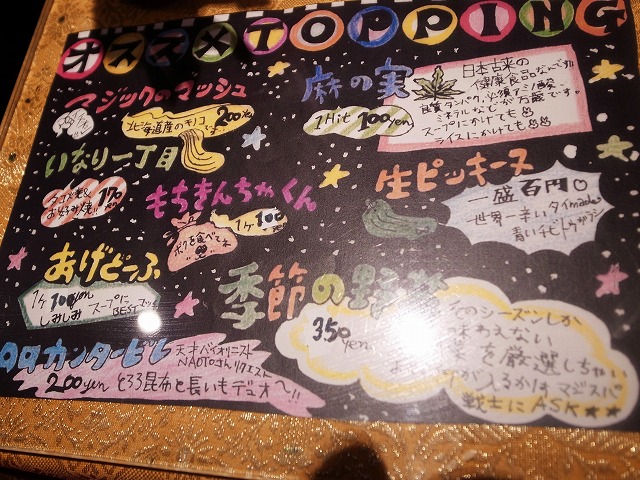 オススメ TOPPING
マジックのマッシュ
北海道産のキノコです。
200yen
麻の実
1Hit 100yen
日本古来の
健康食品なんです。
良質タンパク、必須アミノ酸、
ミネラルなどが万歳です。
スープにかけても
ライスにかけても
いなり一丁目
タコス焼&
お好み焼!!
120yen
もちきんちゃくん
1ヶ 100yen
ボクを食べてネ
生ピッキーヌ
一盛百円。
世界一辛いタイmadeの
青いチビトウガラシ
あげどーふ
1ヶ 100yen
しみしみ スープに
BESTマッチ
季節の野菜
350yen
そのシーズンしか
味わえない
を厳選しちゃい
入るかは、マジスパ
戦士にASK★★
ロロカンタービレ
天才バイオリニスト
NAOTOさんリクエスト
200yen とろろ昆布と長いもデュオ〜!!